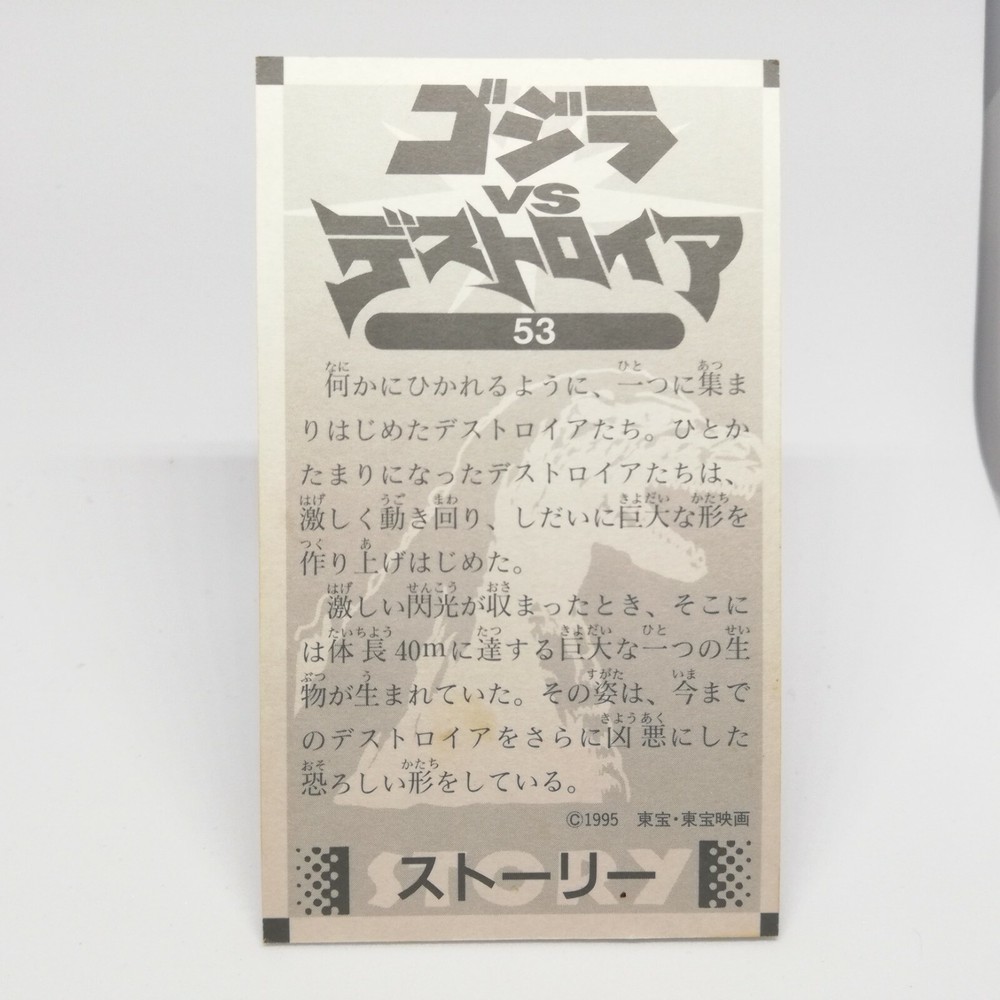 ゴジラ
VS
デストロイア
53
何かにひかれるように、一つに集ま
りはじめたデストロイアたち。ひとか
たまりになったデストロイアたちは、
激しく動き回り、しだいに巨大な形を
作り上げはじめた。
激しい閃光が収まったとき、そこに
は体長40mに達する巨大な一つの生
物が生まれていた。その姿は、今まで
のデストロイアをさらに凶悪にした
恐ろしい形をしている。
©1995 東宝・東宝映画
STORY
ストーリー